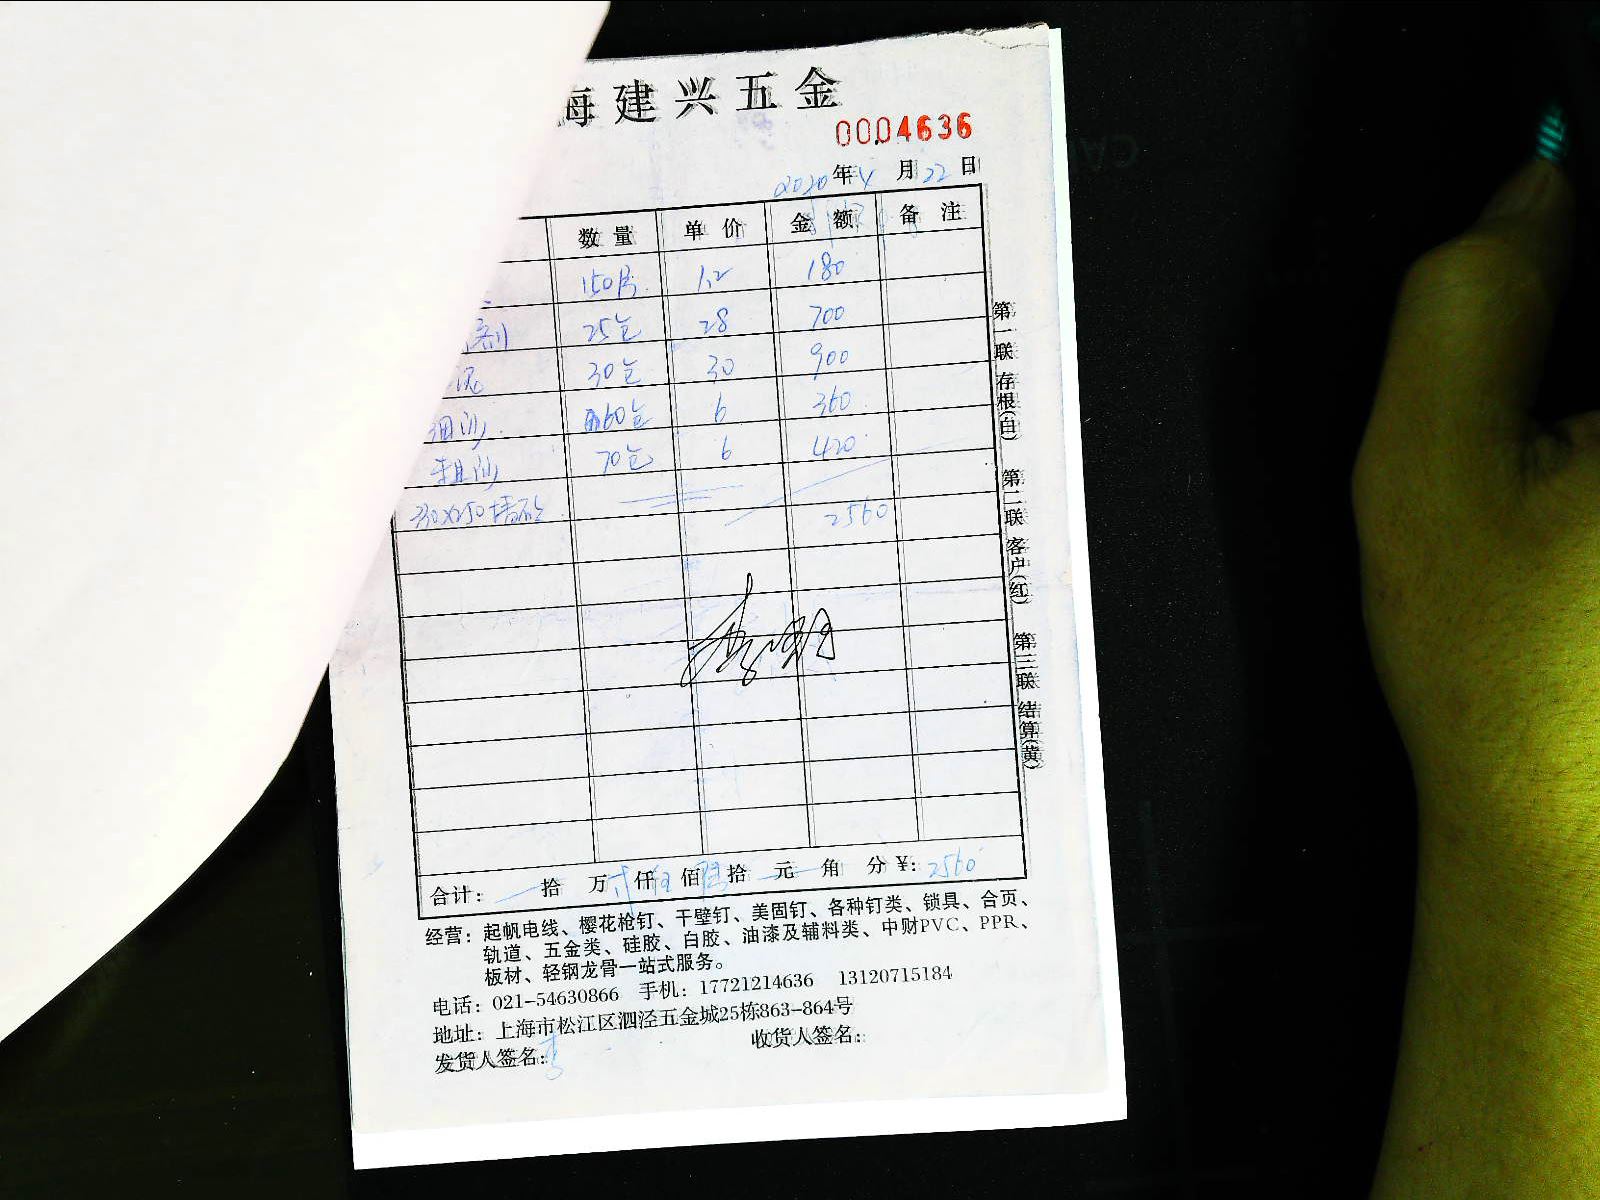 海建兴五金
0004636
2020年4月22日
数量 单价 金额 备注
150片 1.2 180
剂 25包 28 700
泥 30包 30 900
细沙 60包 6 360
粗沙 70包 6 420
330×250 2560
合计: 拾 万 仟 伍 佰 陆 拾 元 角 分 ¥: 2560
经营: 起帆电线、樱花枪钉、干壁钉、美固钉、各种钉类、锁具、合页、
轨道、五金类、硅胶、白胶、油漆及辅料类、中财PVC、PPR、
板材、轻钢龙骨一站式服务。
电话: 021-54630866 手机: 17721214636 13120715184
地址: 上海市松江区泗泾五金城25栋863-864号
发货人签名: 李 收货人签名:
第一联 存根(白) 第二联 客户(红) 第三联 结算(黄)